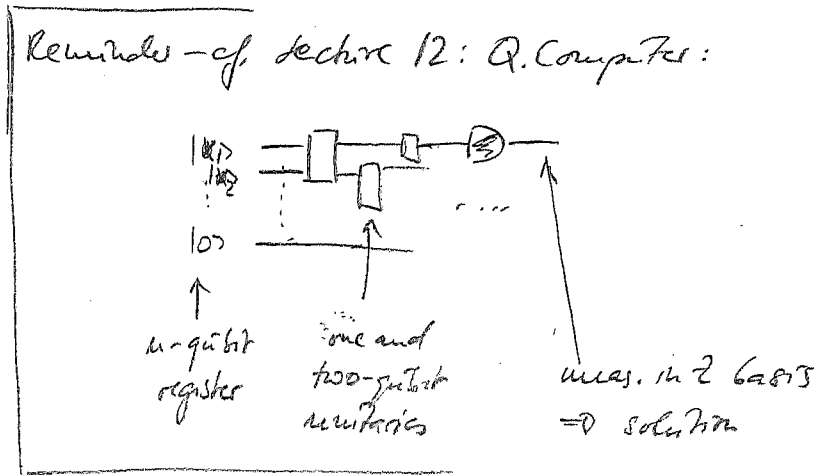 Reminder - cf. Lecture 12: Q. Computer:
|x₁⟩
|x₂⟩
⋮
|0⟩
....
n-qubit
register
one and
two-qubit
unitaries
meas. in Z basis
⇒ solution